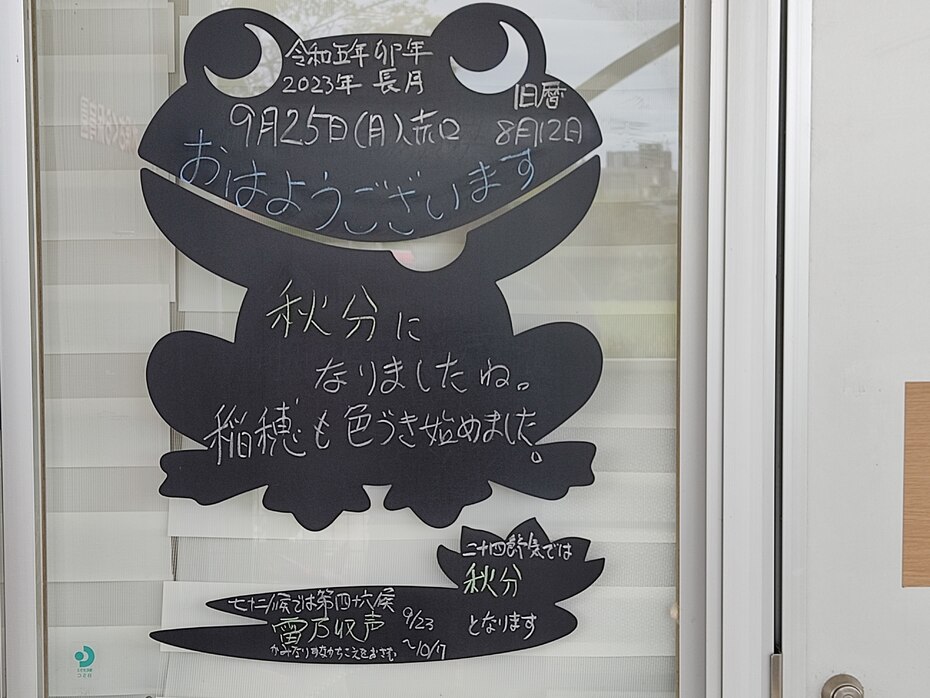 令和五年 卯年
2023年 長月
9月25日(月)、赤口
旧暦
8月12日
おはようございます
秋分に
なりましたね。
稲穂も色づき始めました。
二十四節気では
秋分
となります
七十二候では第四十六候
雷乃収声
9/23
~10/17
かみなりすなわちこえをおさむ